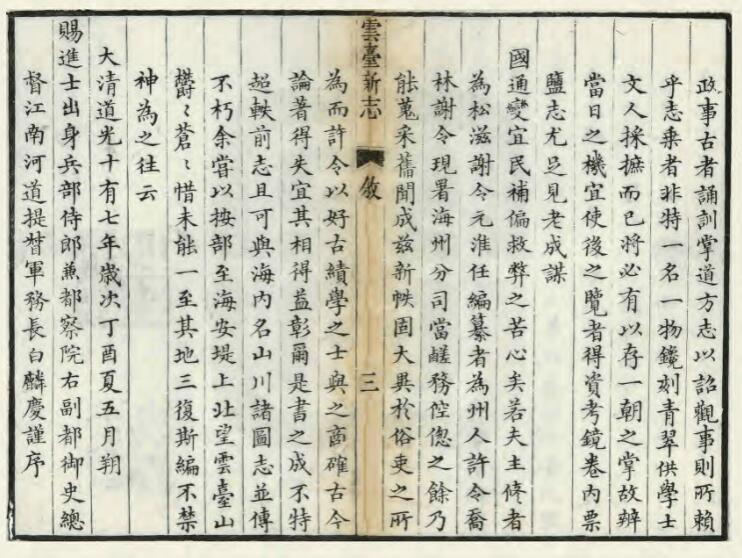 政事古者誦訓掌道方志以詔觀事則所賴
乎志乘者非特一名一物鏡刻青翠供學士
文人採摭而已將必有以存一朝之掌故辨
當日之機宜使後之覽者得資考鏡卷内票
鹽志尤足見老成謀
國通變宜民補偏救弊之苦心矣若夫主修者
為松滋謝令元淮任編纂者為州人許令喬
林謝令現署海州分司當鹺務倥傯之餘乃
能蒐采舊聞成兹新帙固大異於俗吏之所
雲臺新志 敘 三
為而許令以好古績學之士與之商確古今
論著得失宜其相得益彰爾是書之成不特
超軼前志且可與海内名山川諸圖志並傳
不朽余嘗以按部至海安堤上北望雲臺山
鬱〻蒼〻惜未能一至其地三復斯編不禁
神為之往云
大清道光十有七年歲次丁酉夏五月朔
賜進士出身兵部侍郎兼都察院右副都御史總
督江南河道提督軍務長白麟慶謹序